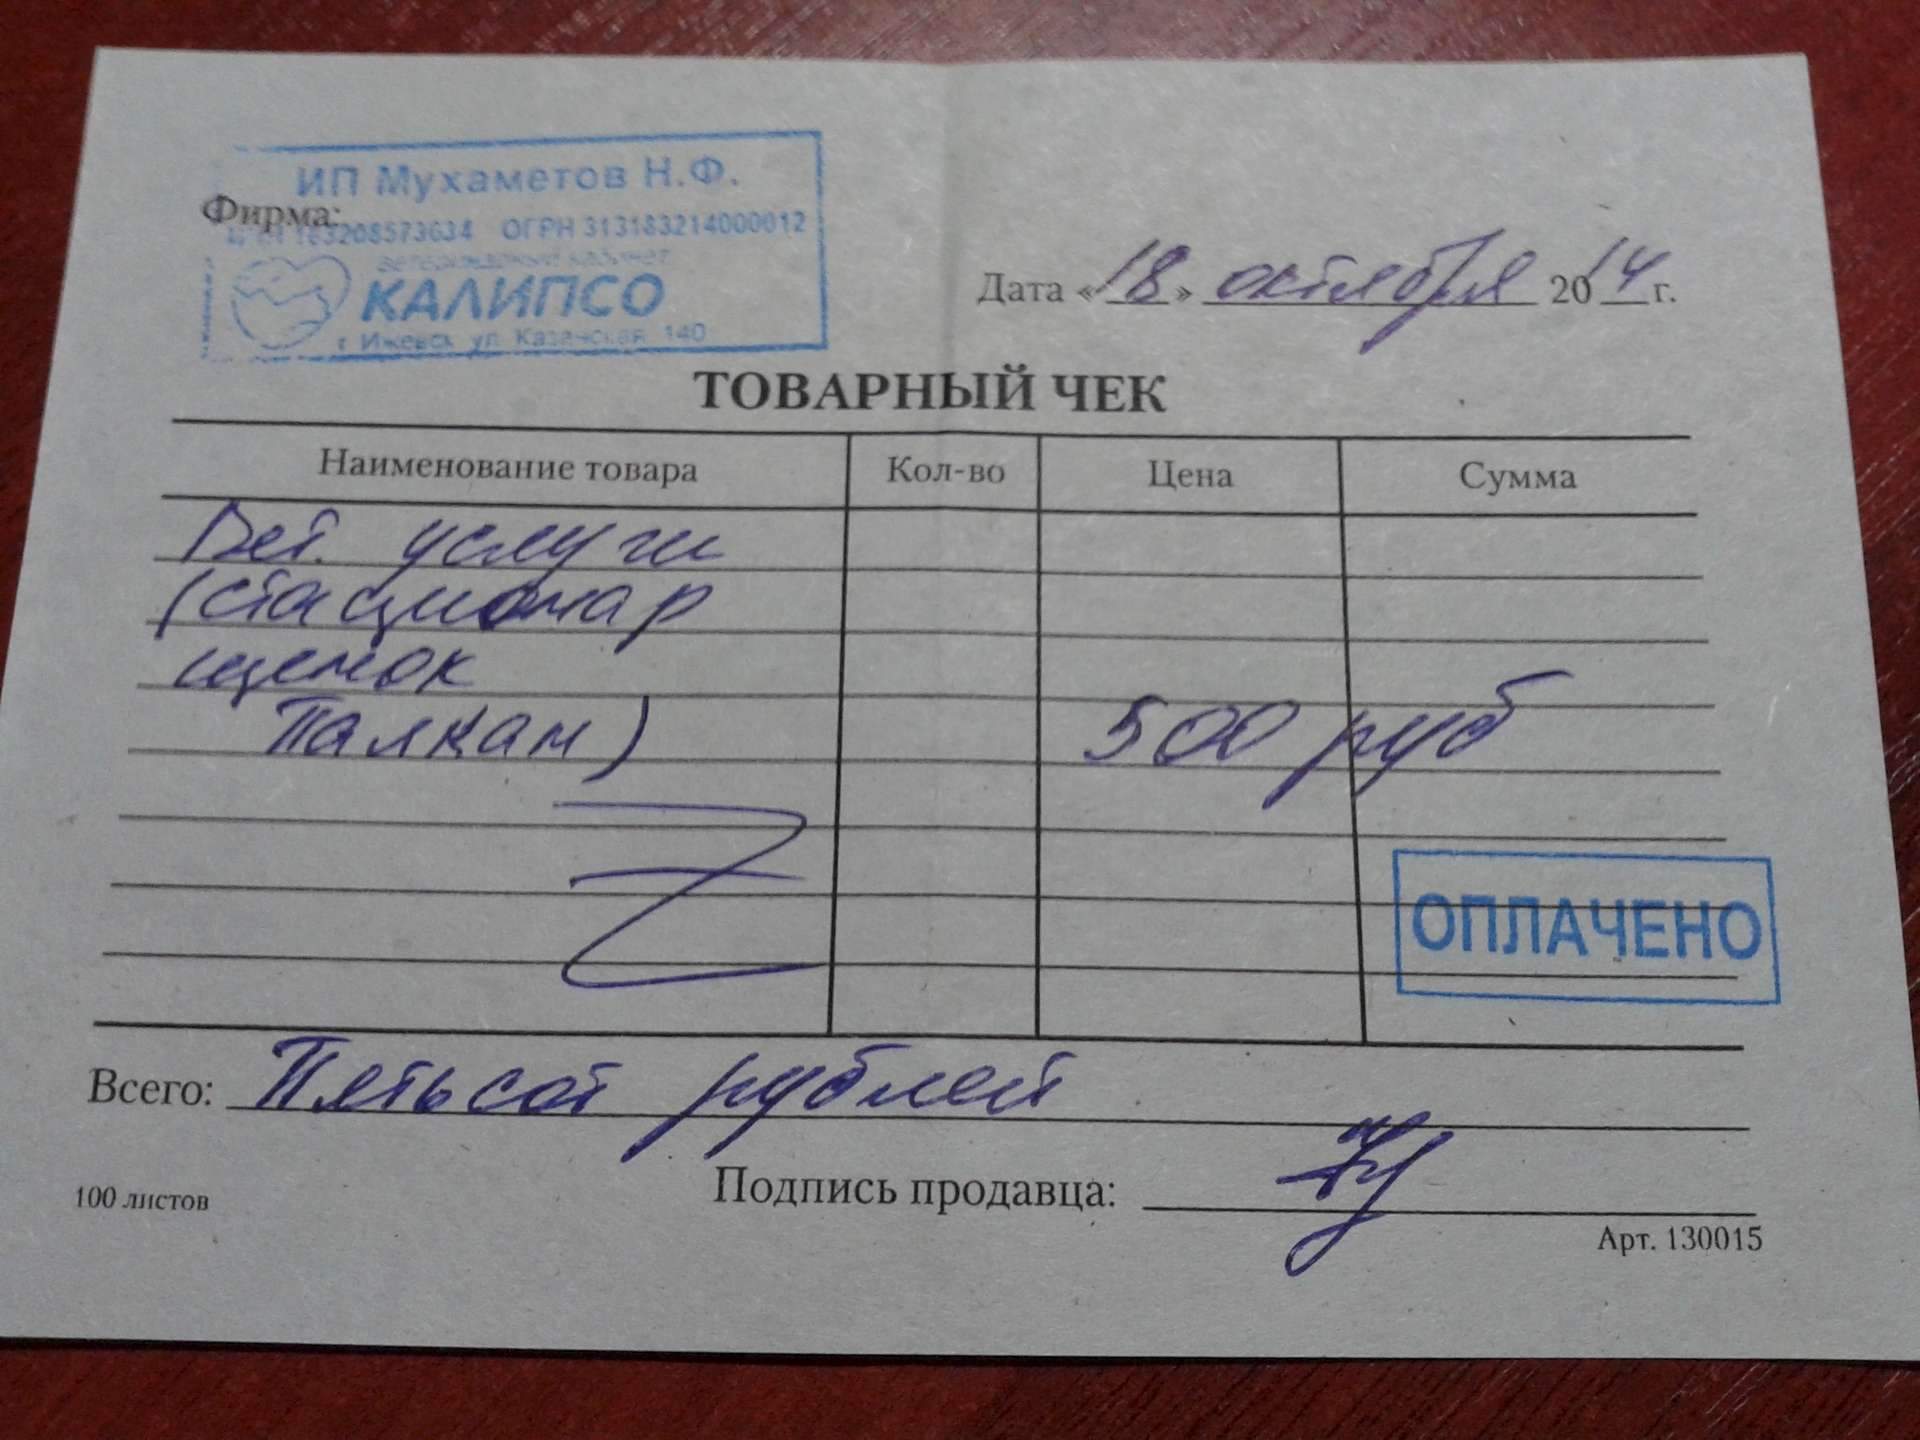 ИП Мухаметов Н.Ф.
Фирма:
183208573634 ОГРН 313183214000012
ветеринарный кабинет
КАЛИПСО
г. Ижевск ул. Казанская, 140
Дата «18» октября 2014 г.
ТОВАРНЫЙ ЧЕК
Наименование товара Кол-во Цена Сумма
Вет. услуги
(стационар
щенок
Палкан) 500 руб
ОПЛАЧЕНО
Всего: Пятьсот рублей
Подпись продавца:
100 листов
Арт. 130015